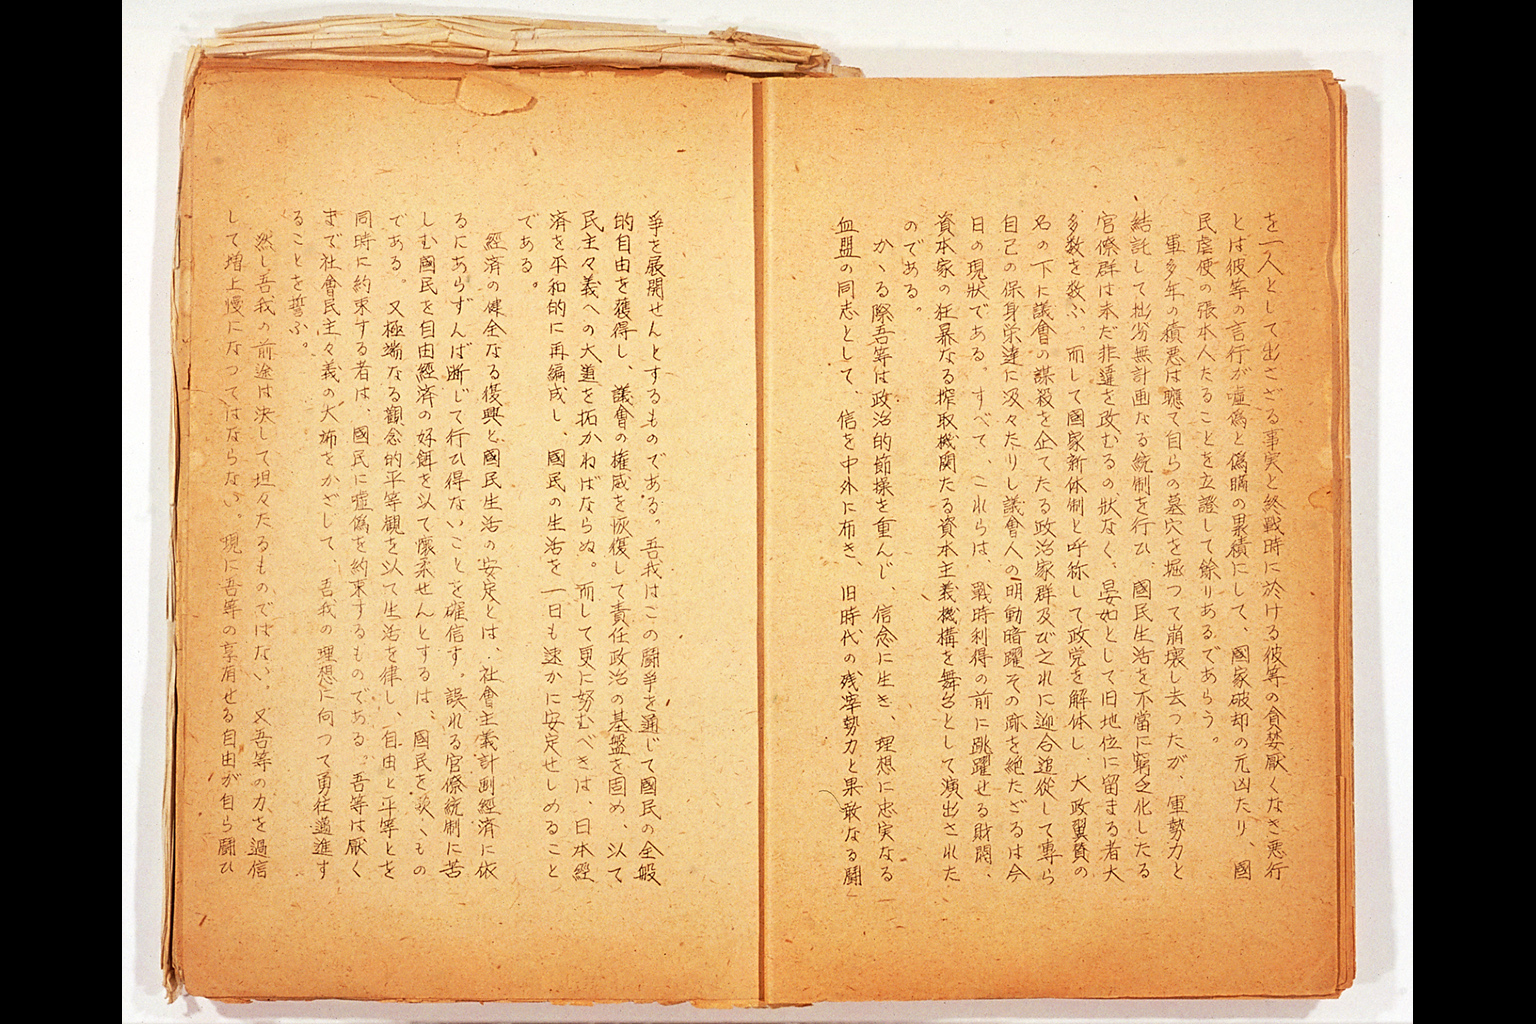 を一人として出さざる事実と終戦時に於ける彼等の貪婪厭くなき悪行
とは彼等の言行が嘘偽と偽瞞の累積にして、國家破却の元凶たり、國
民虐使の張本人たることを立證して餘りあるであらう。
軍多年の積悪は聴て自らの墓穴を堀つて崩壊し去つたが、軍勢力と
結託して拙劣無計画なる統制を行ひ、國民生活を不當に窮乏化したる
官僚群は未だ非違を改むるの狀なく、晏如として旧地位に留まる者大
多数を数ふ。而して國家新体制と呼称して政党を解体し、大政翼賛の
名の下に議會の謀殺を企てたる政治家群及び之れに迎合追從して専ら
自己の保身栄達に汲々たりし議會人の明動暗躍その跡を絶たざるは今
日の現狀である。すべて、これらは、戰時利得の前に跳躍せる財閥、
資本家の狂暴なる搾取機関たる資本主義機構を舞台として演出された
のである。
かゝる際吾等は政治的節操を重んじ、信念に生き、理想に忠実なる
血盟の同志として、信を中外に布き、旧時代の残滓勢力と果敢なる闘
爭を展開せんとするものである。吾我はこの鬪爭を通じて國民の全般
的自由を獲得し、議會の権威を恢復して責任政治の基盤を固め、以て
民主々義への大道を拓かねばならぬ。而して更に努むべきは、日本經
済を平和的に再編成し、國民の生活を一日も速かに安定せしめること
である。
經済の健全なる復興と國民生活の安定とは、社會主義計画經済に依
るにあらずんば断じて行ひ得ないことを確信す。誤れる官僚統制に苦
しむ國民を自由經済の好餌を以て懐柔せんとするは、國民を欺くもの
である。又極端なる觀念的平等観を以て生活を律し、自由と平等とを
同時に約束する者は、國民に嘘偽を約束するものである。吾等は厭く
まで社會民主々義の大旆をかざして、吾我の理想に向つて勇往邁進す
ることを誓ふ。
然し吾我の前途は決して坦々たるものではない。又吾等の力を過信
して増上慢になつてはならない。現に吾等の享有せる自由が自ら鬪ひ